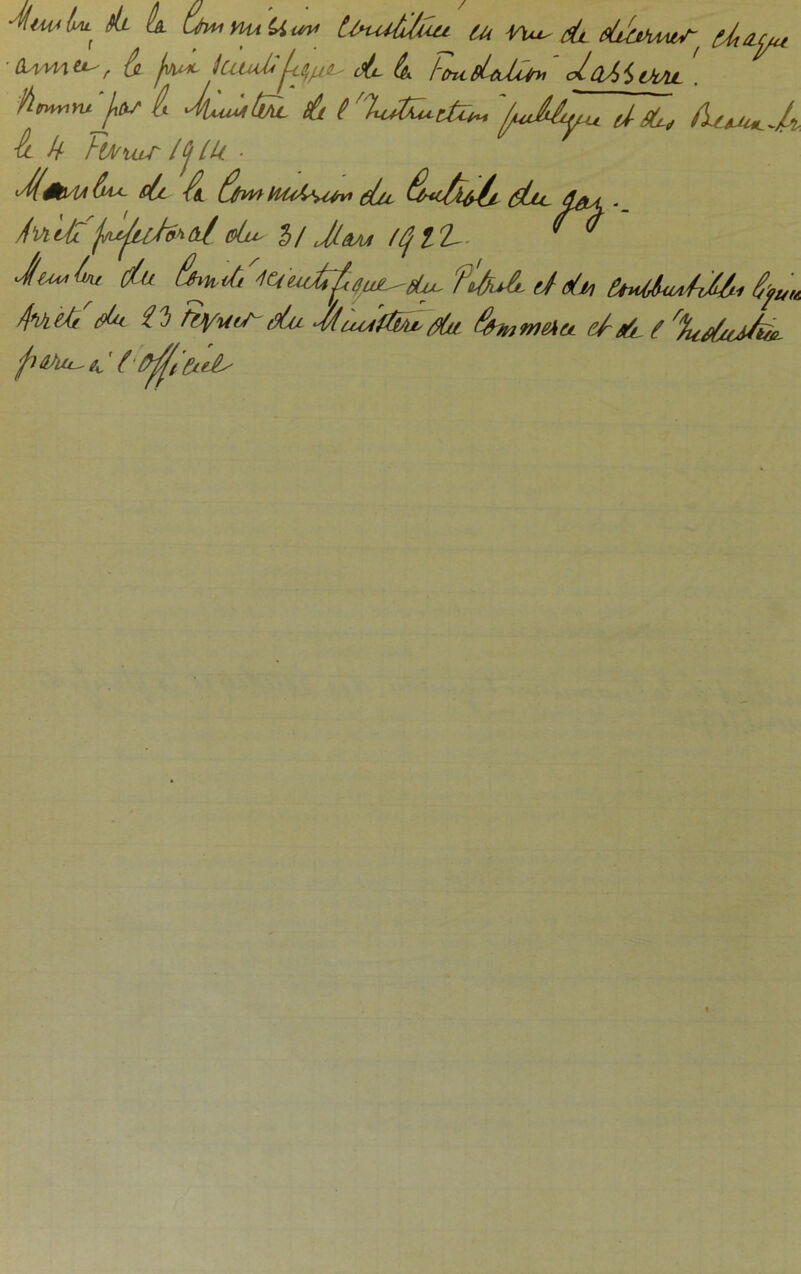 Membre de la Commission Constituée en vue de décerner, chaque
année, le prix scientifique de la Fondation Lasserre.
Nommé par le Ministère de l'Instruction publique et des Beaux-Arts
le 4 Février 19
Membre de la Commission du Contrôle du gaz.
Arrêté préfectoral du 31 Mars 1922
Membre du Comité scientifique du Pétrole et des Combustibles liquides
Arrêté du 23 février du Ministère du Commerce et de l'Industrie
paru à l'Officiel